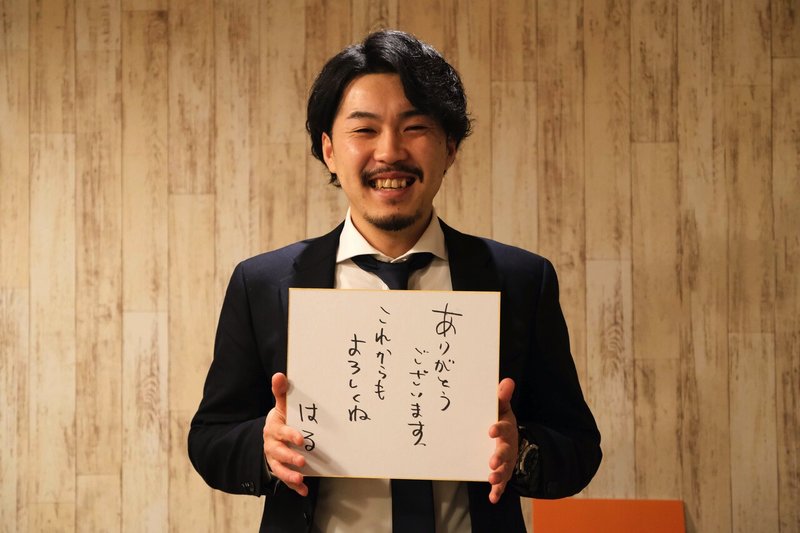 ありがとう
ございます、
これからも
よろしくね
はる